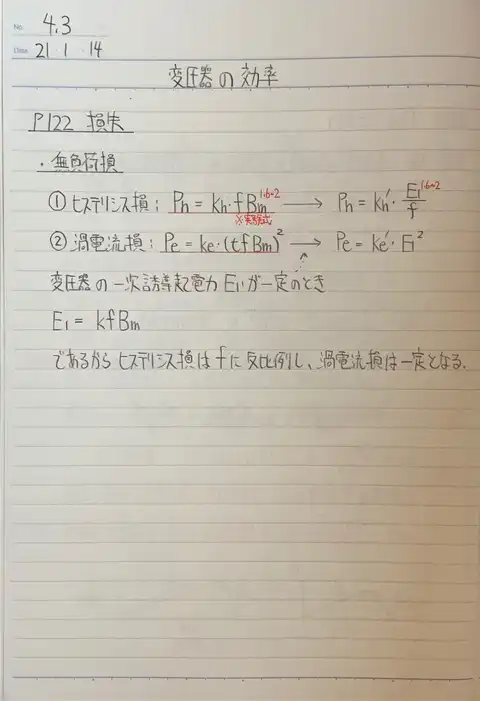 No. 4.3
Date 21・1・14
変圧器の効率
P122 損失
・無負荷損
① ヒステリシス損; Ph = kh・fBm^1.6~2 → Ph = kh'・E1^1.6~2/f
※実験式
② 渦電流損: Pe = ke・(tfBm)² → Pe = ke'・E1²
変圧器の一次誘導起電力 E1が一定のとき
E1 = kfBm
であるから ヒステリシス損は fに反比例し、渦電流損は一定となる.